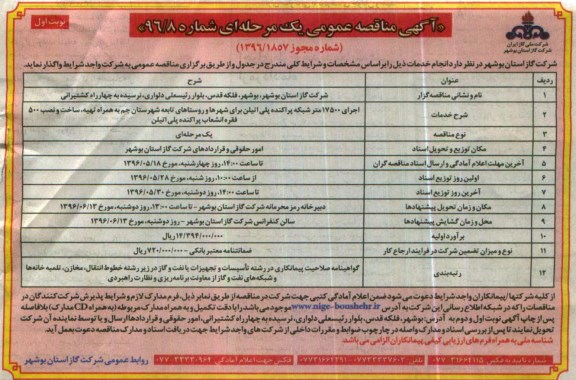 نوبت اول
«آگهی مناقصه عمومی یک مرحله‌ای شماره ۹۶/۸»
(شماره مجوز ۱۳۹۶/۱۸۵۷)
شرکت ملی گاز ایران
شرکت گاز استان بوشهر
شرکت گاز استان بوشهر در نظر دارد انجام خدمات ذیل را براساس مشخصات و شرایط کلی مندرج در جدول و از طریق برگزاری مناقصه عمومی به شرکت واجد شرایط واگذار نماید.
ردیف عنوان شرح
۱ نام و نشانی مناقصه‌گزار شرکت گاز استان بوشهر، بوشهر، فلکه قدس، بلوار رئیسعلی دلواری، نرسیده به چهارراه کشتیرانی
۲ شرح خدمات اجرای ۱۷۵۰۰ متر شبکه پراکنده پلی اتیلن برای شهرها و روستاهای تابعه شهرستان جم به همراه تهیه، ساخت و نصب ۵۰۰
فقره انشعاب پراکنده پلی اتیلن
۳ نوع مناقصه یک مرحله‌ای
۴ مکان توزیع و تحویل اسناد امور حقوقی و قراردادهای شرکت گاز استان بوشهر
۵ آخرین مهلت اعلام آمادگی و ارسال اسناد مناقصه گران تا ساعت ۱۴:۰۰، روز چهارشنبه، مورخ ۱۳۹۶/۰۵/۱۸
۶ اولین روز توزیع اسناد از ساعت ۱۰:۰۰، روز شنبه، مورخ ۱۳۹۶/۰۵/۲۸
۷ آخرین روز توزیع اسناد تا ساعت ۱۴:۰۰، روز دوشنبه، مورخ ۱۳۹۶/۰۵/۳۰
۸ مکان و زمان تحویل پیشنهادها دبیرخانه رمز محرمانه شرکت گاز استان بوشهر - تا ساعت ۱۳:۰۰، روز دوشنبه، مورخ ۱۳۹۶/۰۶/۱۳
۹ محل و زمان گشایش پیشنهادها سالن کنفرانس شرکت گاز استان بوشهر - روز دوشنبه، مورخ ۱۳۹۶/۰۶/۱۳
۱۰ برآورد اولیه ۱۴/۳۹۴/۰۰۰/۰۰۰ ریال
۱۱ نوع و میزان تضمین شرکت در فرایند ارجاع کار ضمانتنامه معتبر بانکی - ۷۲۰/۰۰۰/۰۰۰ ریال
۱۲ رتبه‌بندی گواهینامه صلاحیت پیمانکاری در رشته تأسیسات و تجهیزات یا نفت و گاز در زیر رشته خطوط انتقال، مخازن، تلمبه خانه‌ها
و شبکه‌های نفت و گاز از معاونت برنامه ریزی و نظارت راهبردی
از کلیه شرکتها / پیمانکاران واجد شرایط دعوت می‌شود ضمن اعلام آمادگی کتبی جهت شرکت در مناقصه از طریق نمابر ذیل، فرم مدارک لازم و شرایط پذیرش شرکت کنندگان در
مناقصات را که در شبکه اطلاع رسانی این شرکت به آدرس www.nigc-boushehr.ir موجود می‌باشد را با دقت تکمیل و به همراه مدارک مربوطه (به همراه CD مدارک) بلافاصله
پس از چاپ آگهی نوبت اول و دوم به آدرس: بوشهر، فلکه قدس، بلوار رئیسعلی دلواری، نرسیده به چهارراه کشتیرانی، امور حقوقی و قراردادها ارسال و یا توسط نماینده آن شرکت
تحویل نمایند تا پس از بررسی اسناد و مدارک واصله در چارچوب ضوابط و مقررات داخلی از شرکت‌های واجد شرایط جهت دریافت اسناد و مدارک مناقصه دعوت بعمل آید.
شناسه ملی به همراه فرم‌های ارزیابی کیفی پیمانکاران الزامی می باشد.
روابط عمومی شرکت گاز استان بوشهر